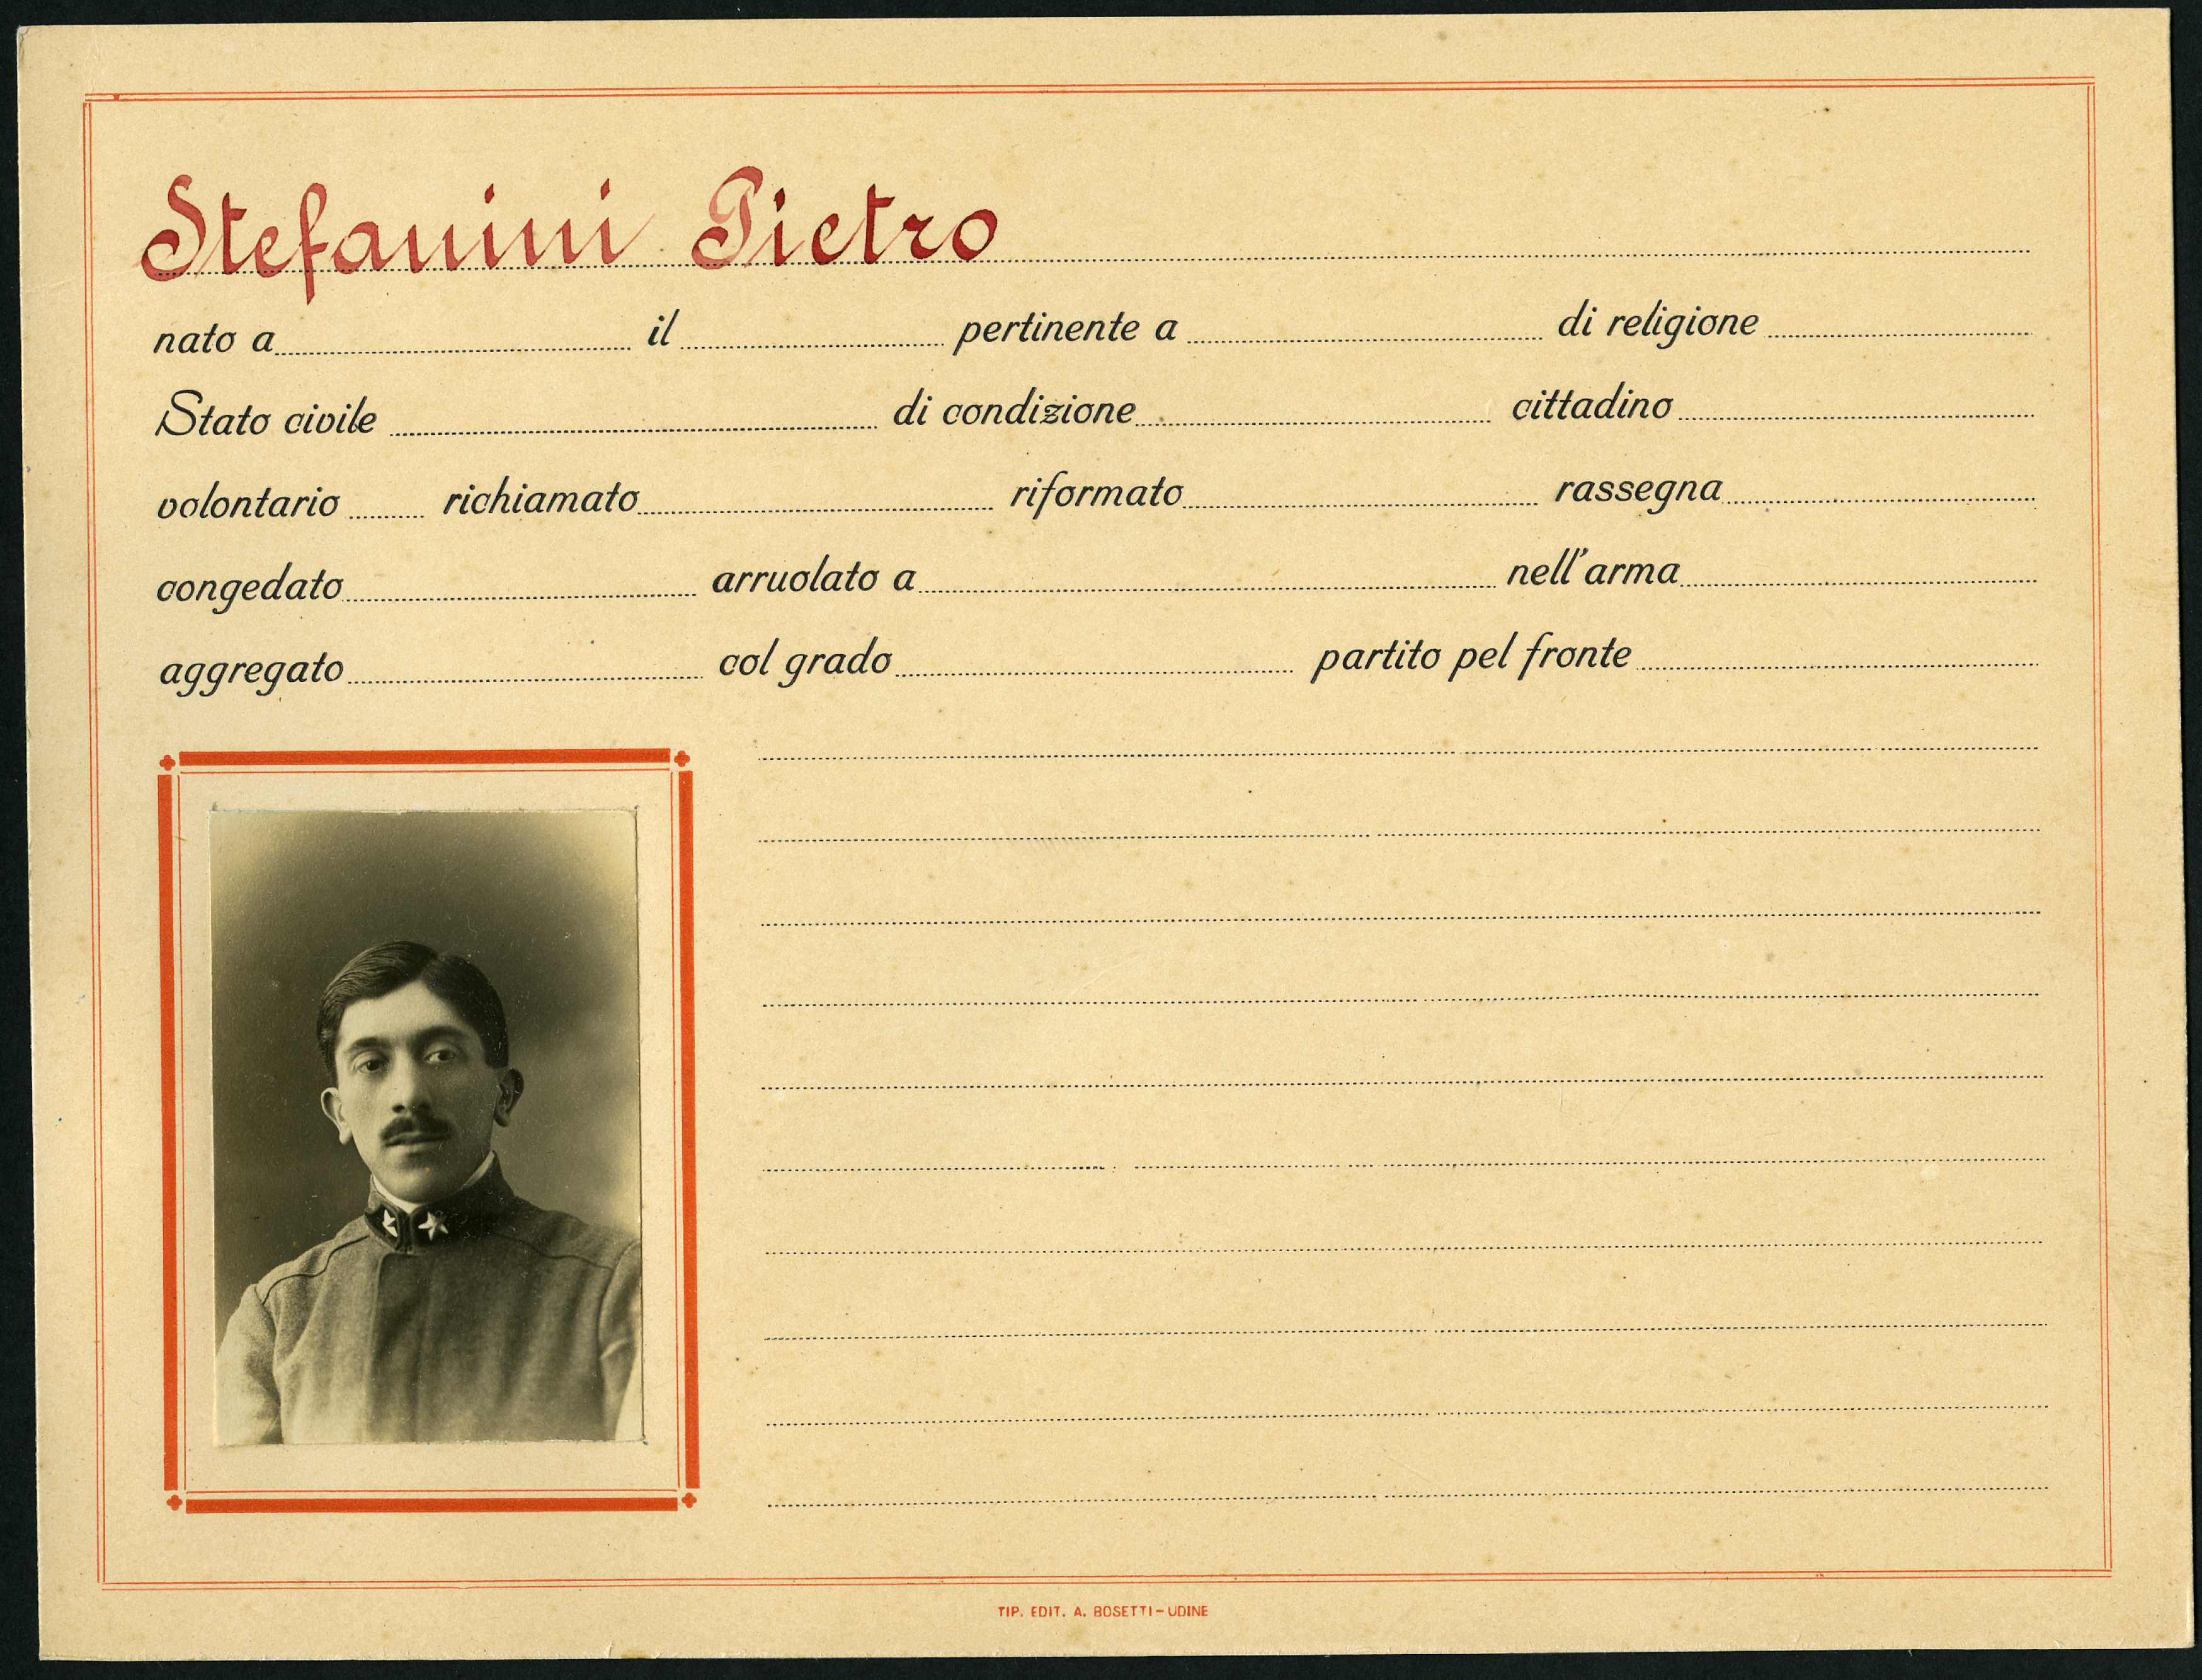 Stefanini Pietro
nato a il pertinente a di religione
Stato civile di condizione cittadino
volontario richiamato riformato rassegna
congedato arruolato a nell'arma
aggregato col grado partito pel fronte
TIP. EDIT. A. BOSETTI-UDINE